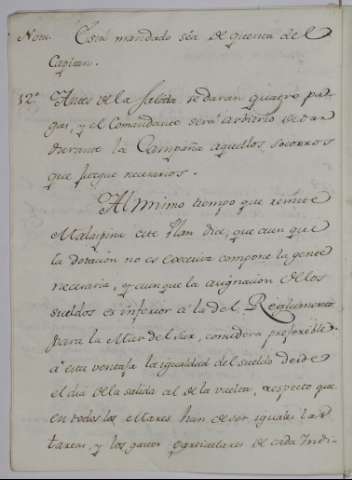 Nota. Está mandado sea de quenta del
Capitan.
12ª Antes de la salida se daran quatro pa-
gas, y el Comandante será arbitrio de dar
durante la Campaña aquellos socorros
que juzgue necesarios.
Al mismo tiempo que remite
Malaspina este Plan dice, que aun que
la dotación no es excesiva compone la gente
necesaria, y aunque la asignacion de los
sueldos es inferior á la del Reglamento
para la Mar del Sur, considera preferible
á esta ventaja la igualdad del sueldo desde
el dia de la salida al de la vuelta, respecto que
en todos los Mares han de ser iguales las
tareas, y los gastos particulares de cada Indi-